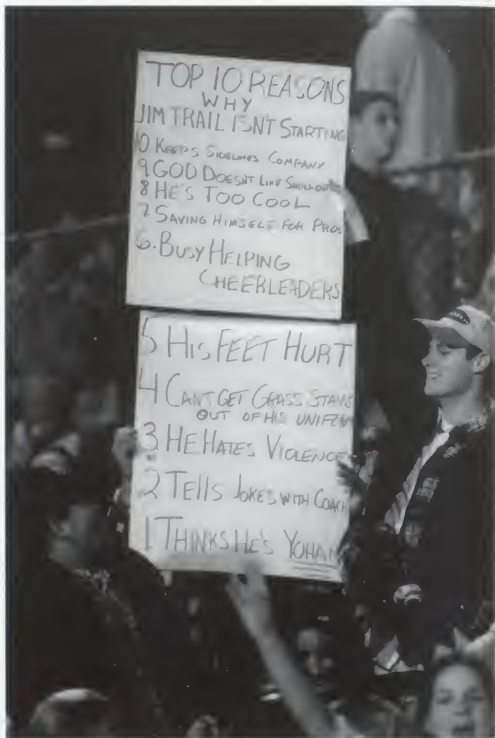 TOP 10 REASONS
WHY
JIM TRAIL ISN'T STARTING
10 KEEPS SIDELINES COMPANY
9 GOD DOESN'T LIKE
8 HE'S TOO COOL
7 SAVING HIMSELF FOR PROS
6. BUSY HELPING
CHEERLEADERS
5 HIS FEET HURT
4 CAN'T GET GRASS STAINS
OUT OF HIS UNIFORM
3 HE HATES VIOLENCE
2 TELLS JOKES WITH COACH
1 THINKS HE'S YOHAN